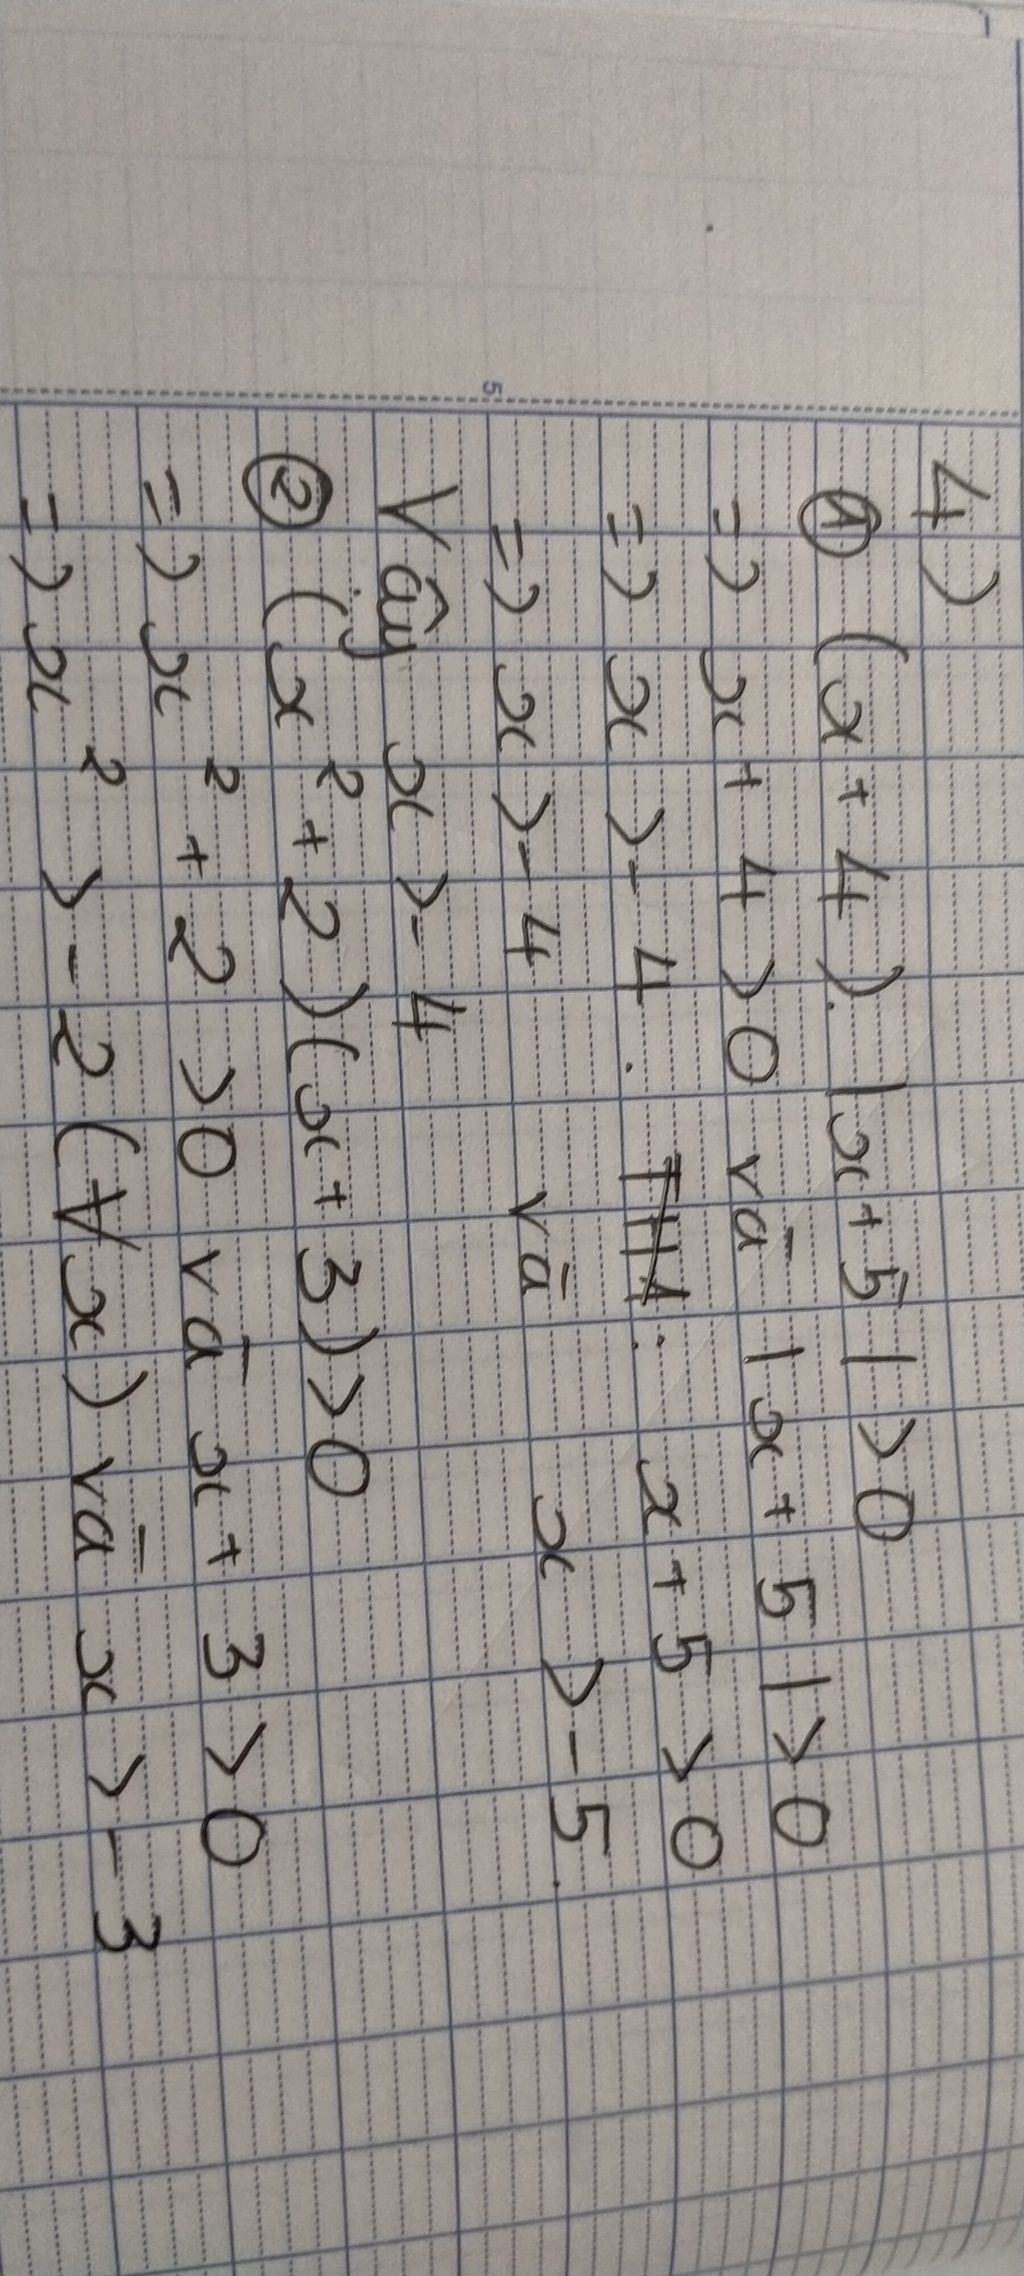 4)
① (x + 4). |x + 5| > 0
=> x + 4 > 0 và |x + 5| > 0
=> x > - 4 . x + 5 > 0
=> x > - 4 và x > - 5.
Vậy x > - 4
② (x² + 2)(x + 3) > 0
=> x² + 2 > 0 và x + 3 > 0
=> x² > - 2 (∀x) và x > - 3
5